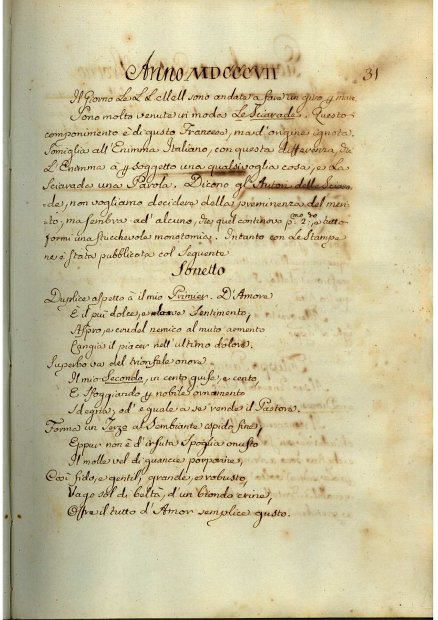 Anno MDCCCVII
31
Il Giorno Le L L M M ell sono andate a fare un giro p mare
Sono molto venute in moda Le Sciarade. Questo
componimento è di gusto Francese, ma d'origine ignota.
Somiglia all Enimma Italiano, con questa differenza, che
L'Enimma à p soggetto una qualsivoglia cosa, e La
Sciarada una Parola. Dicono gl'Autori delle Sciara
de, non vogliamo decidere della preminenza del meri
to, ma sembra ad alcuno, che quel continovo p.mo 2.do, e tutto
formi una stucchevole monotomia. Intanto con Le Stampe
ne è stata pubblicata col Seguente
Sonetto
Duplice aspetto à il mio Primier. D'Amore
E il più dolce, e soave Sentimento,
Aspro, e crudel nemico al muto armento
Cangia il piacer nell'ultimo dolore.
Superbo va del trionfale onore
Il mio Secondo, in cento guise, e cento,
E sfoggiando p nobile ornamento
Sdegna, od' eguale a se rende il Pastore.
Forma un Terzo al Sembiante ispido fine,
Eppur non è d'irsuta Spoglia onusto
Il molle vel di guancie porporine,
Così fido, e gentil, grande, e robusto,
Vago sol di beltà, d'un biondo crine,
Offre il tutto d'Amor semplice gusto.